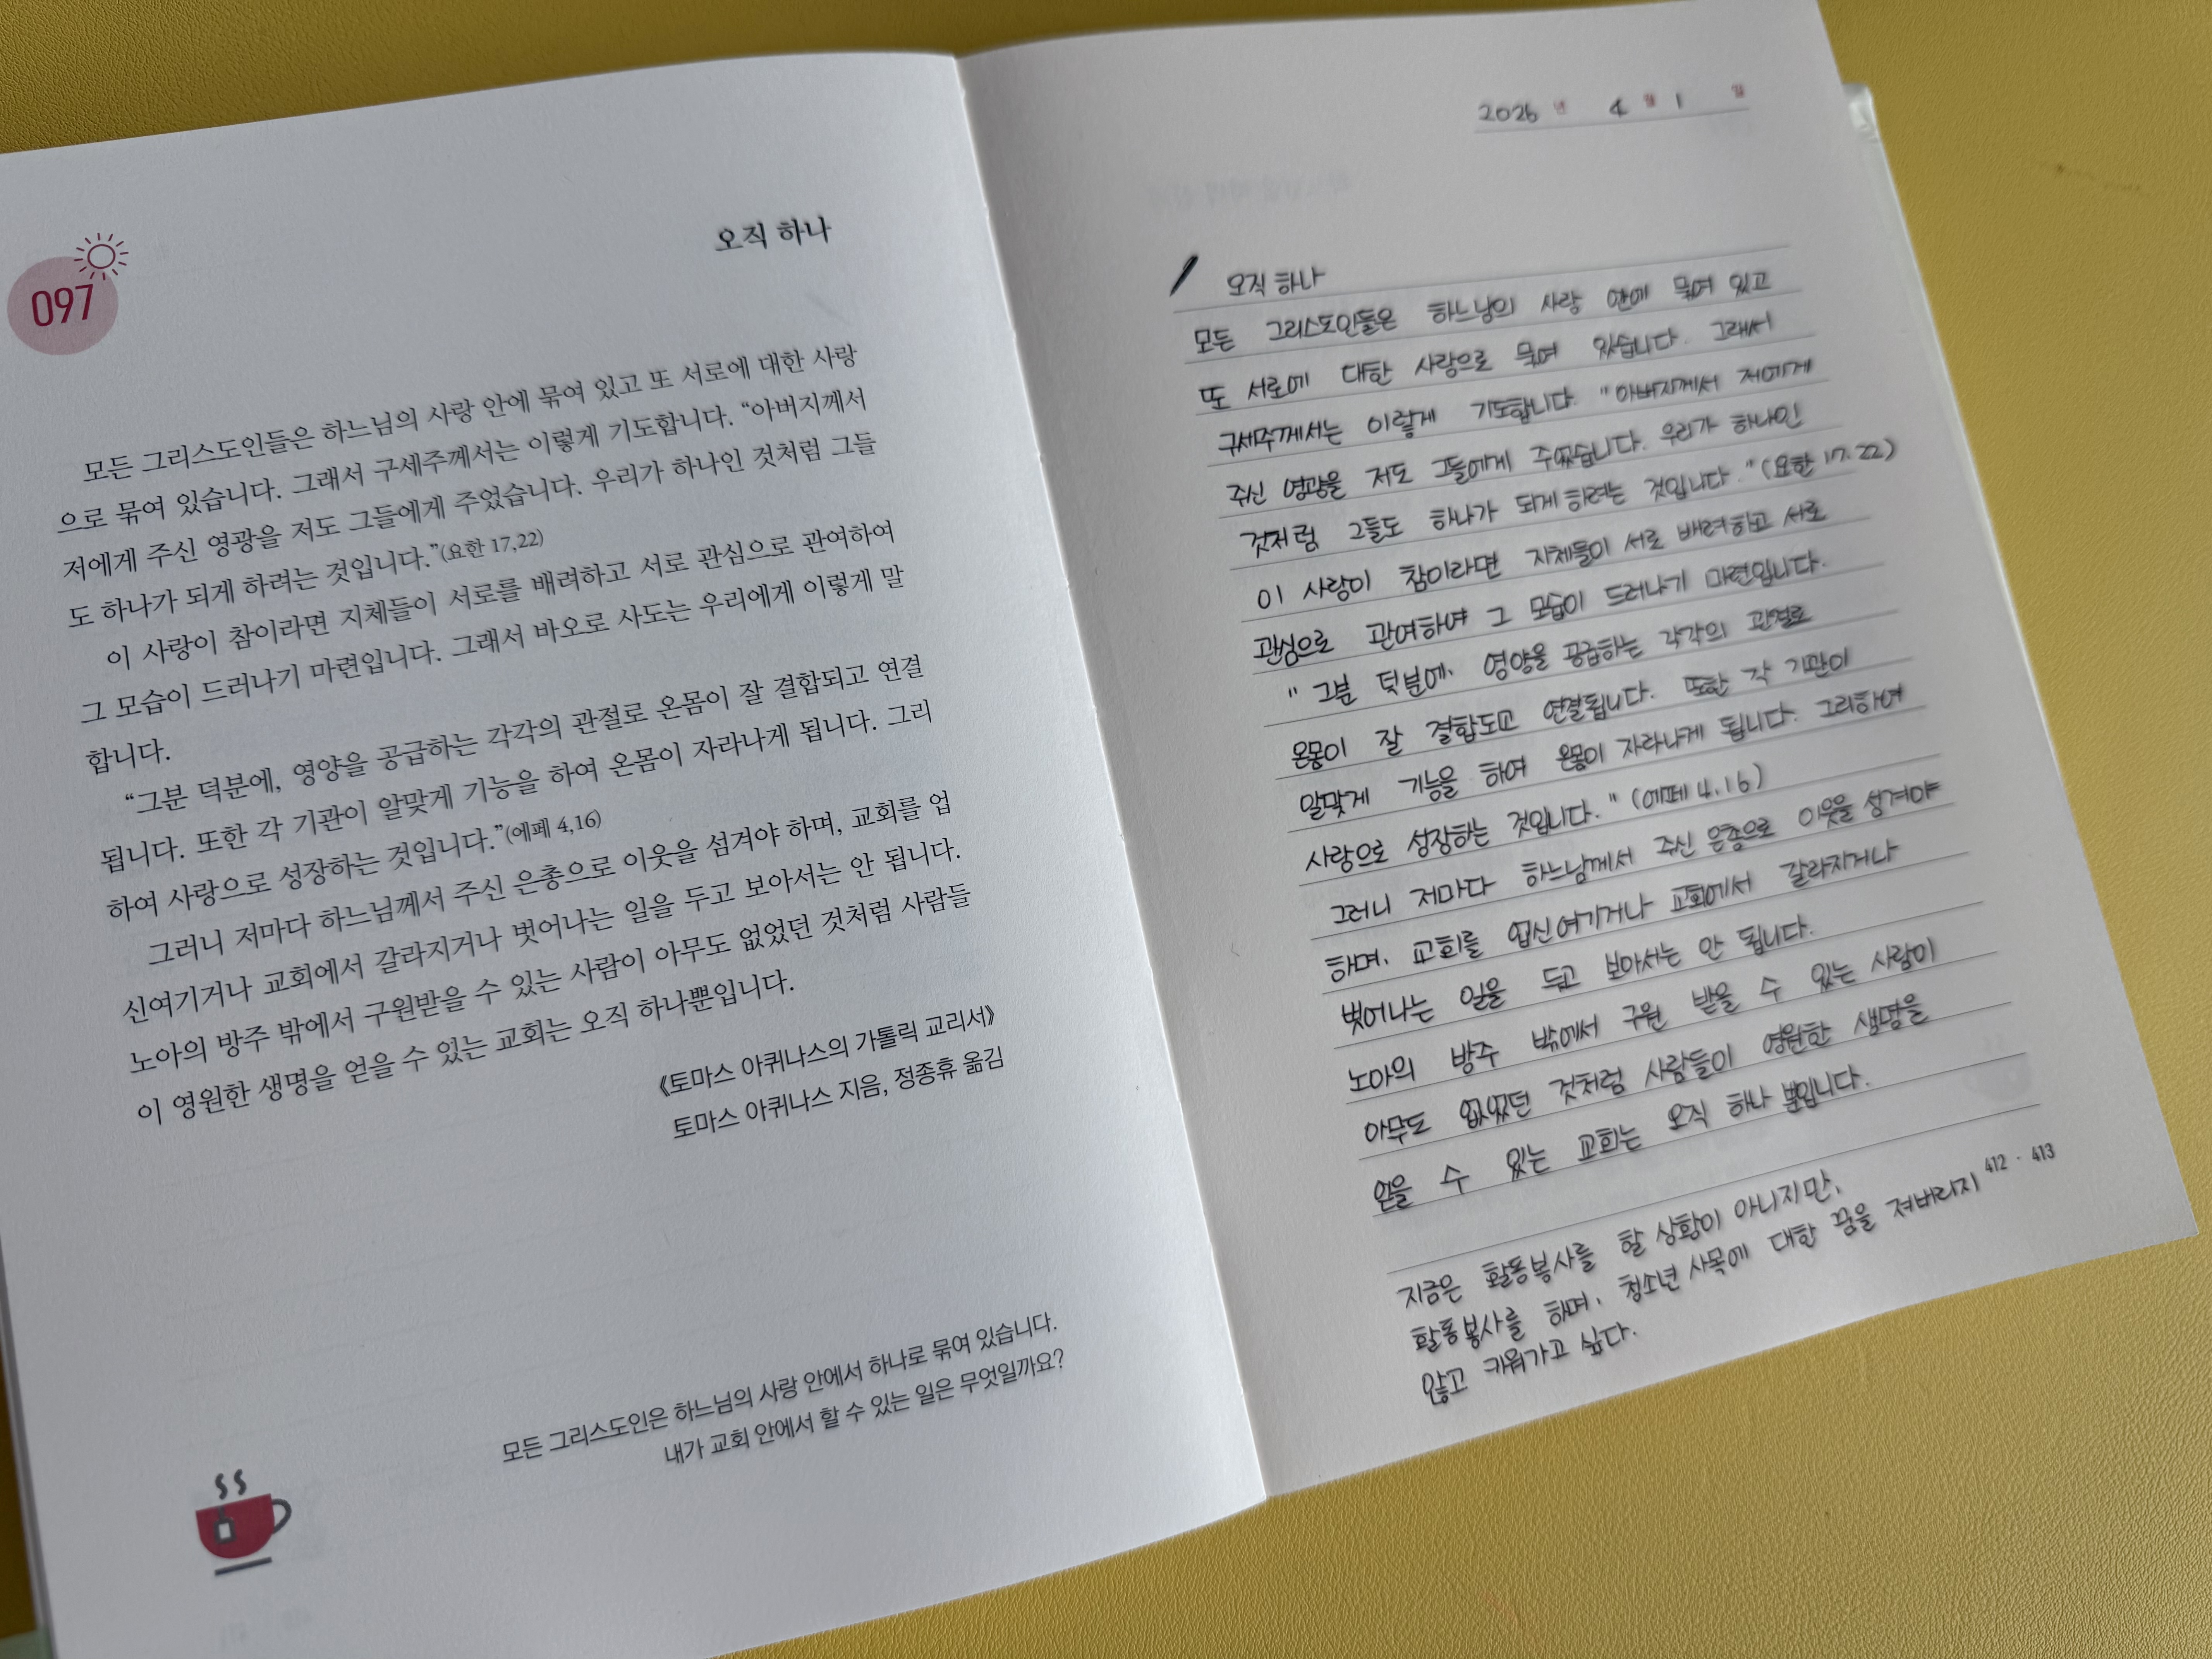 097
오직 하나
모든 그리스도인들은 하느님의 사랑 안에 묶여 있고 또 서로에 대한 사랑
으로 묶여 있습니다. 그래서 구세주께서는 이렇게 기도합니다. “아버지께서
저에게 주신 영광을 저도 그들에게 주었습니다. 우리가 하나인 것처럼 그들
도 하나가 되게 하려는 것입니다.”(요한 17,22)
이 사랑이 참이라면 지체들이 서로를 배려하고 서로 관심으로 관여하여
그 모습이 드러나기 마련입니다. 그래서 바오로 사도는 우리에게 이렇게 말
합니다.
“그분 덕분에, 영양을 공급하는 각각의 관절로 온몸이 잘 결합되고 연결
됩니다. 또한 각 기관이 알맞게 기능을 하여 온몸이 자라나게 됩니다. 그리
하여 사랑으로 성장하는 것입니다.”(에페 4,16)
그러니 저마다 하느님께서 주신 은총으로 이웃을 섬겨야 하며, 교회를 업
신여기거나 교회에서 갈라지거나 벗어나는 일을 두고 보아서는 안 됩니다.
노아의 방주 밖에서 구원받을 수 있는 사람이 아무도 없었던 것처럼 사람들
이 영원한 생명을 얻을 수 있는 교회는 오직 하나뿐입니다.
《토마스 아퀴나스의 가톨릭 교리서》
토마스 아퀴나스 지음, 정종휴 옮김
모든 그리스도인은 하느님의 사랑 안에서 하나로 묶여 있습니다.
내가 교회 안에서 할 수 있는 일은 무엇일까요?
2026 년 4 월 1 일
오직 하나
모든 그리스도인들은 하느님의 사랑 안에 묶여 있고
또 서로에 대한 사랑으로 묶여 있습니다. 그래서
구세주께서는 이렇게 기도합니다. "아버지께서 저에게
주신 영광을 저도 그들에게 주었습니다. 우리가 하나인
것처럼 그들도 하나가 되게 하려는 것입니다." (요한 17.22)
이 사랑이 참이라면 지체들이 서로 배려하고 서로
관심으로 관여하여 그 모습이 드러나기 마련입니다.
"그분 덕분에, 영양을 공급하는 각각의 관절로
온몸이 잘 결합되고 연결됩니다. 또한 각 기관이
알맞게 기능을 하여 온몸이 자라나게 됩니다. 그리하여
사랑으로 성장하는 것입니다." (에페 4.16)
그러니 저마다 하느님께서 주신 은총으로 이웃을 섬겨야
하며, 교회를 업신여기거나 교회에서 갈라지거나
벗어나는 일을 두고 보아서는 안 됩니다.
노아의 방주 밖에서 구원 받을 수 있는 사람이
아무도 없었던 것처럼 사람들이 영원한 생명을
얻을 수 있는 교회는 오직 하나 뿐입니다.
412 · 413
지금은 활동봉사를 할 상황이 아니지만,
활동봉사를 하며, 청소년 사목에 대한 꿈을 져버리지
않고 키워가고 싶다.